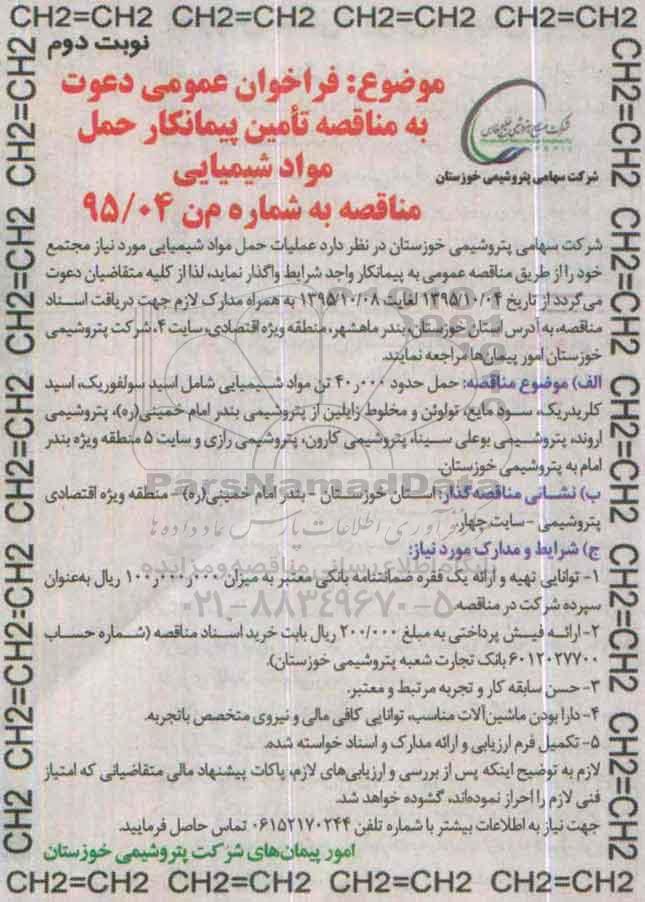 CH2=CH2 CH2=CH2 CH2=CH2 CH2=CH2
نوبت دوم
موضوع: فراخوان عمومی دعوت
به مناقصه تأمین پیمانکار حمل
مواد شیمیایی
مناقصه به شماره م‌ن ۹۵/۰۴
شرکت صنایع پتروشیمی خلیج فارس
شرکت سهامی پتروشیمی خوزستان
شرکت سهامی پتروشیمی خوزستان در نظر دارد عملیات حمل مواد شیمیایی مورد نیاز مجتمع
خود را از طریق مناقصه عمومی به پیمانکار واجد شرایط واگذار نماید، لذا از کلیه متقاضیان دعوت
می‌گردد از تاریخ ۱۳۹۵/۱۰/۰۴ لغایت ۱۳۹۵/۱۰/۰۸ به همراه مدارک لازم جهت دریافت اسناد
مناقصه، به آدرس استان خوزستان، بندر ماهشهر، منطقه ویژه اقتصادی، سایت ۴، شرکت پتروشیمی
خوزستان امور پیمان‌ها مراجعه نمایند.
الف) موضوع مناقصه: حمل حدود ۴۰٫۰۰۰ تن مواد شیمیایی شامل اسید سولفوریک، اسید
کلریدریک، سود مایع، تولوئن و مخلوط زایلین از پتروشیمی بندر امام خمینی(ره)، پتروشیمی
اروند، پتروشیمی بوعلی سینا، پتروشیمی کارون، پتروشیمی رازی و سایت ۵ منطقه ویژه بندر
امام به پتروشیمی خوزستان.
ب) نشانی مناقصه‌گذار: استان خوزستان - بندر امام خمینی(ره) - منطقه ویژه اقتصادی
پتروشیمی - سایت چهار
ج) شرایط و مدارک مورد نیاز:
۱- توانایی تهیه و ارائه یک فقره ضمانتنامه بانکی معتبر به میزان ۱۰۰٫۰۰۰٫۰۰۰ ریال به‌عنوان
سپرده شرکت در مناقصه.
۲- ارائه فیش پرداختی به مبلغ ۲۰۰/۰۰۰ ریال بابت خرید اسناد مناقصه (شماره حساب
۶۰۱۲۰۲۷۷۰۰ بانک تجارت شعبه پتروشیمی خوزستان).
۳- حسن سابقه کار و تجربه مرتبط و معتبر.
۴- دارا بودن ماشین‌آلات مناسب، توانایی کافی مالی و نیروی متخصص باتجربه.
۵- تکمیل فرم ارزیابی و ارائه مدارک و اسناد خواسته شده.
لازم به توضیح اینکه پس از بررسی و ارزیابی‌های لازم، پاکات پیشنهاد مالی متقاضیانی که امتیاز
فنی لازم را احراز نموده‌اند، گشوده خواهد شد.
جهت نیاز به اطلاعات بیشتر با شماره تلفن ۰۶۱۵۲۱۷۰۲۴۴ تماس حاصل فرمایید.
امور پیمان‌های شرکت پتروشیمی خوزستان
CH2=CH2 CH2=CH2 CH2=CH2 CH2=CH2
CH2=CH2 CH2=CH2 CH2=CH2 CH2=CH2 CH2=CH2
CH2=CH2 CH2=CH2 CH2=CH2 CH2=CH2 CH2=CH2
ParsNamadData
فرآوری اطلاعات پارس نماد داده‌ها
پایگاه اطلاع رسانی مناقصه و مزایده
۰۲۱-۸۸۳۴۹۶۷۰-۵